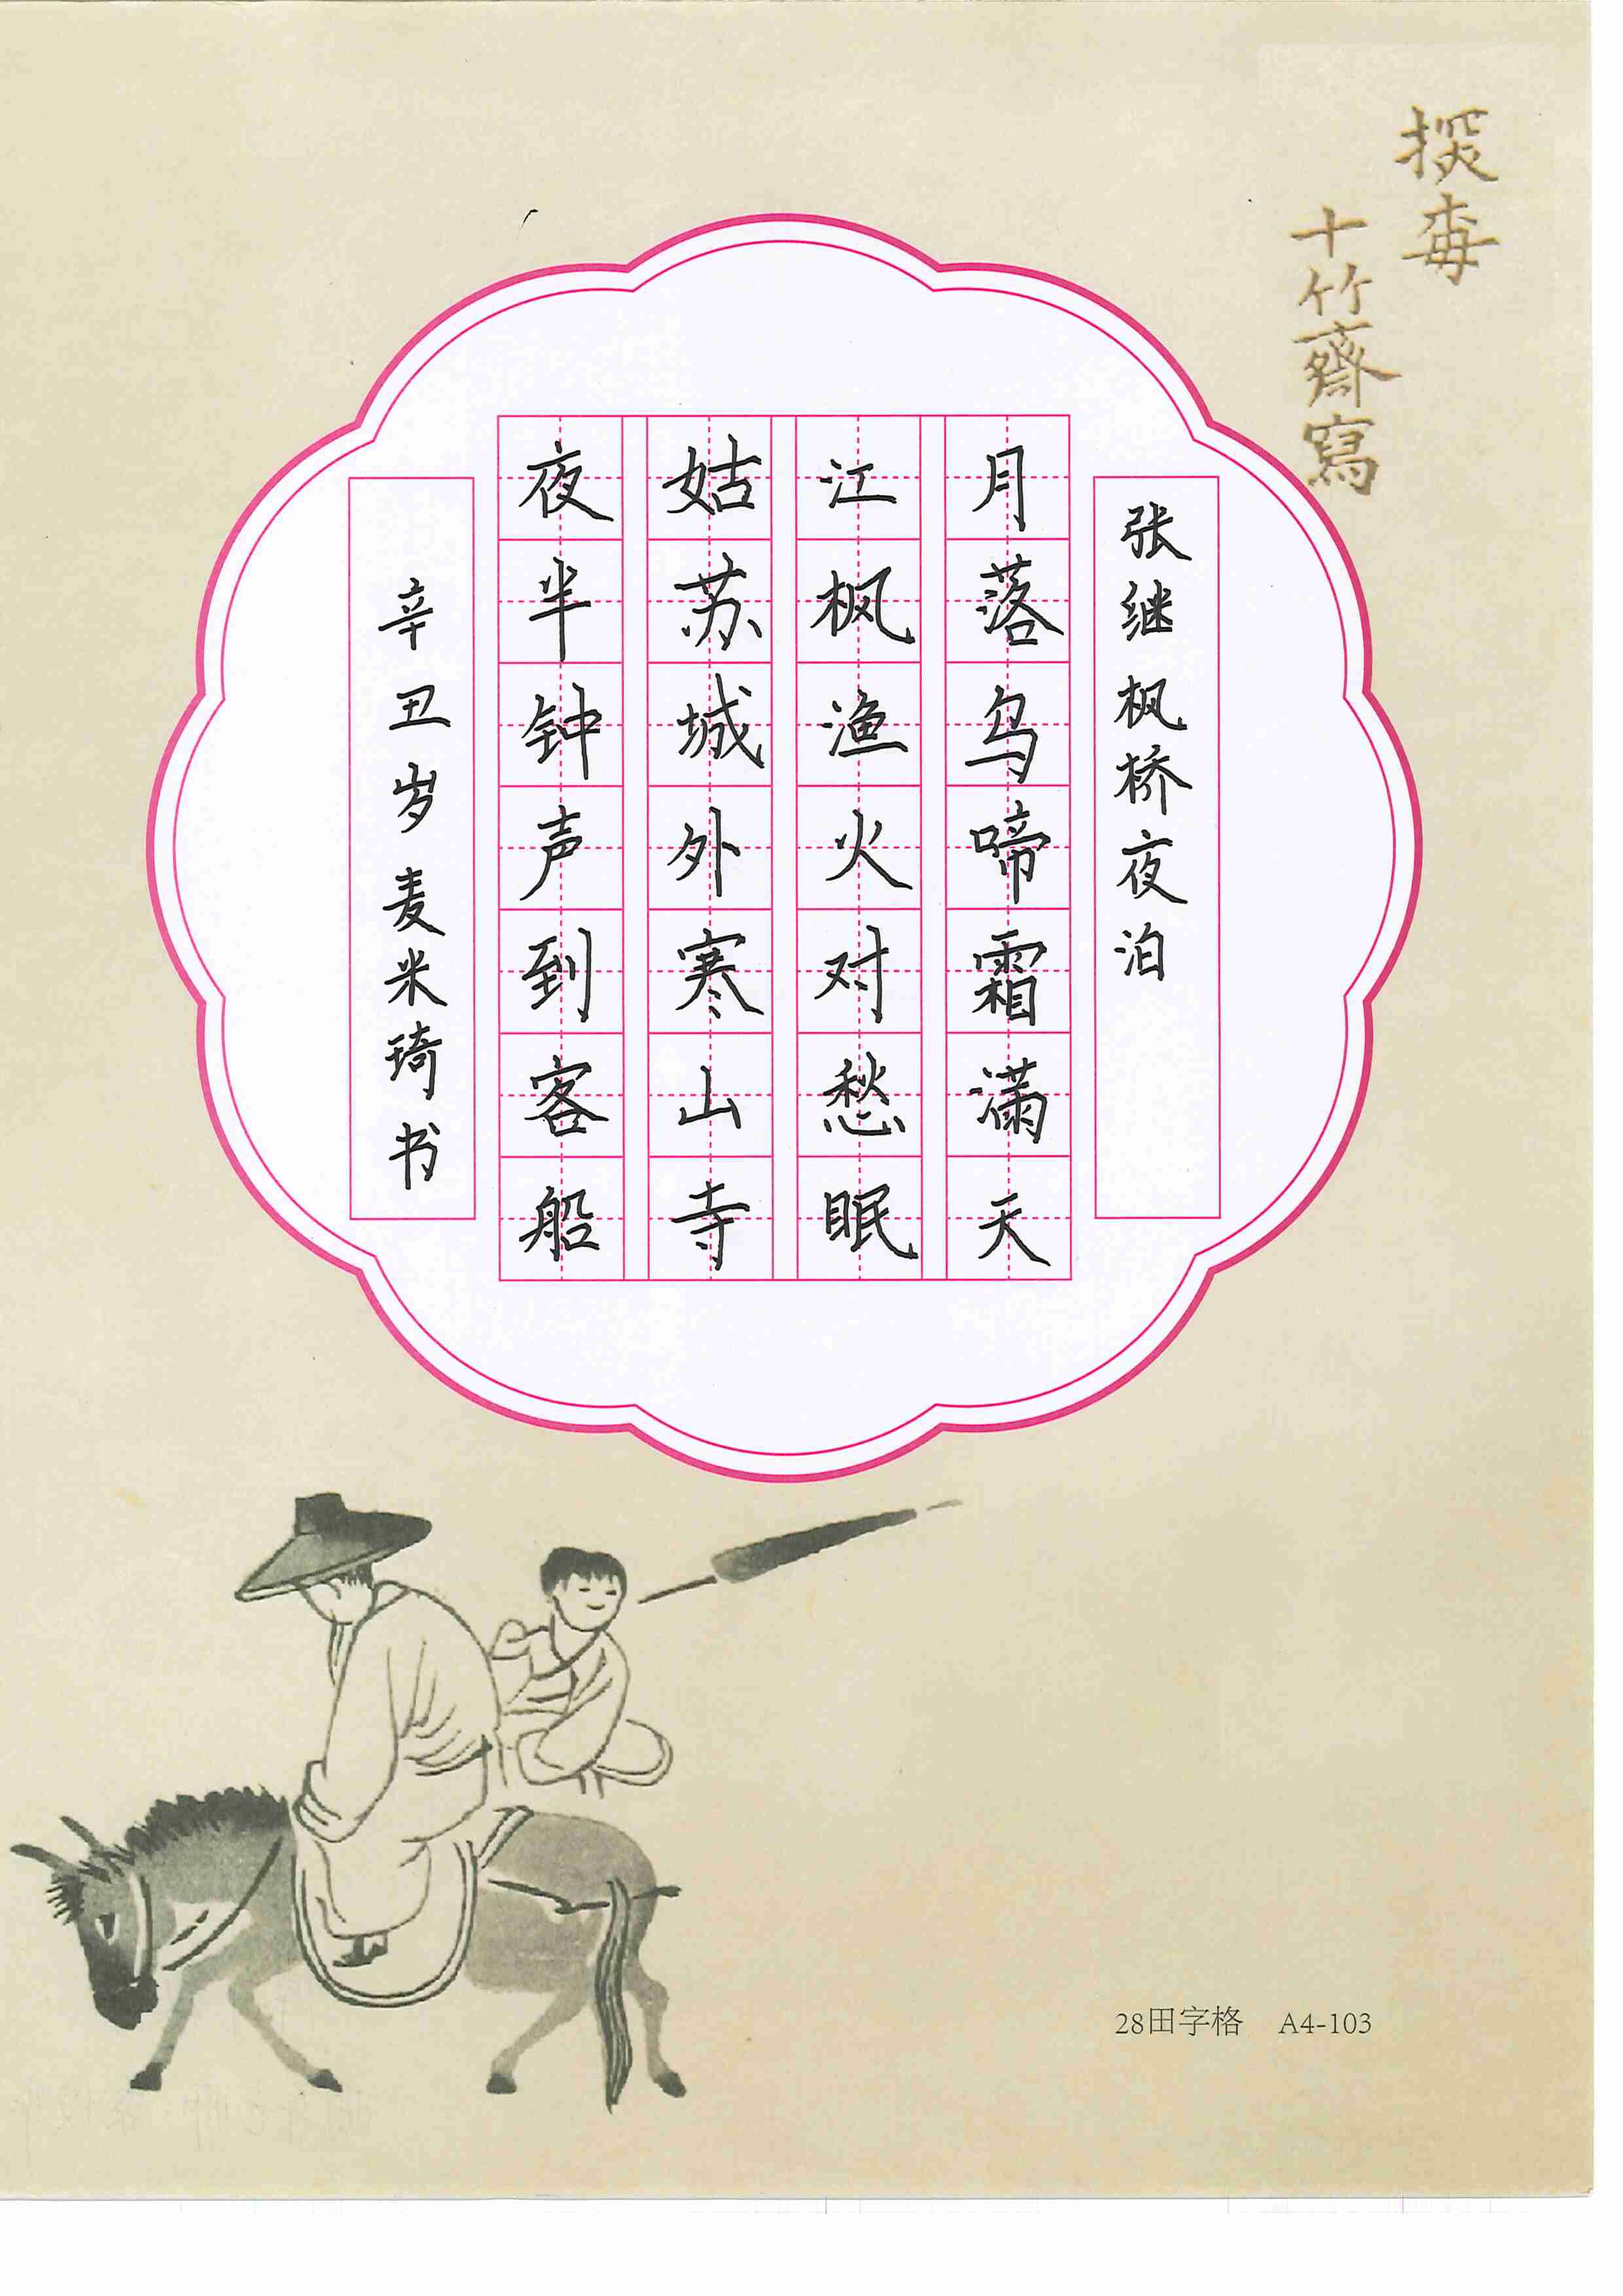 探梅
十竹齋寫
张继枫桥夜泊
月落乌啼霜满天
江枫渔火对愁眠
姑苏城外寒山寺
夜半钟声到客船
辛丑岁麦米琦书
28田字格 A4-103